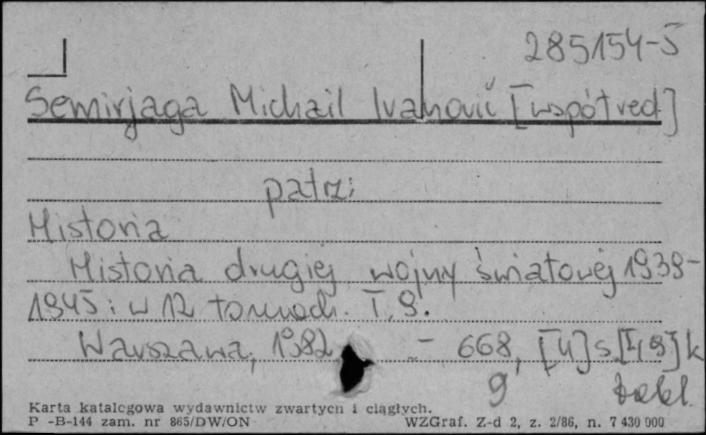 285154-5
Semirjaga Michail Ivanovič [współred]
patrz:
Historia
Historia drugiej wojny światowej 1939-
1945: w 12 tomach. T. 9.
Warszawa, 1982 - 668, [4] s. [I, 9] k
9 tabl.
Karta katalogowa wydawnictw zwartych i ciągłych.
P -B-144 zam. nr 865/DW/ON WZGraf. Z-d 2, z. 2/86, n. 7 430 000